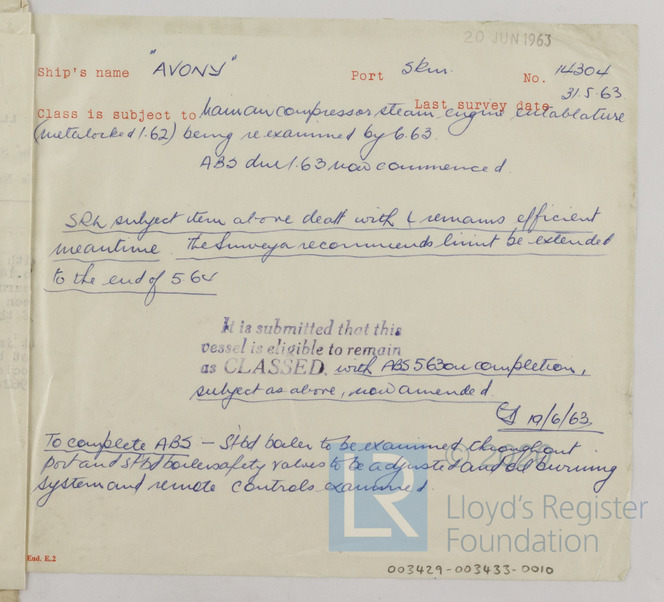 20 JUN 1963
Ship's name "AVONY" Port Skm. No. 14304
Last survey date 31.5.63.
Class is subject to Hamamcompressor steam engine entablature
(metalocked 1.62) being re examined by 6.63.
ABS due 1.63 now commenced.
SRL subject item above dealt with & remains efficient
meantime. The Surveyor recommends limit be extended
to the end of 5 64
It is submitted that this
vessel is eligible to remain
as CLASSED. with ABS 5.63 on completion,
subject as above, now amended.
19/6/63.
To complete ABS - Stbd boiler to be examined throughout
port and stbd boiler safety valves to be adjusted and oil burning
system and remote controls examined.
End. E.2
LR
Lloyd's Register
Foundation
003429-003433-0010